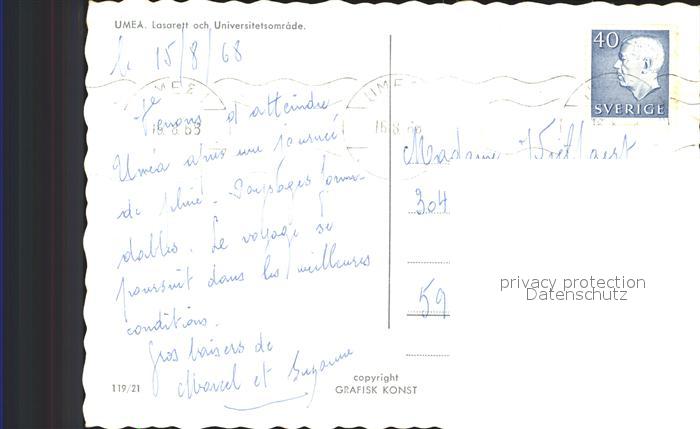 UMEÅ. Lasarett och Universitetsområde.
le 15/8/68
40
SVERIGE
UME
15.8.68
Venons d'atteindre
Uméa après une journée
de pluie. Paysages formi-
dables. Le voyage se
poursuit dans les meilleures
conditions.
Gros baisers de
Marcel et Suzanne
Madame
304
59
privacy protection
Datenschutz
119/21
copyright
GRAFISK KONST